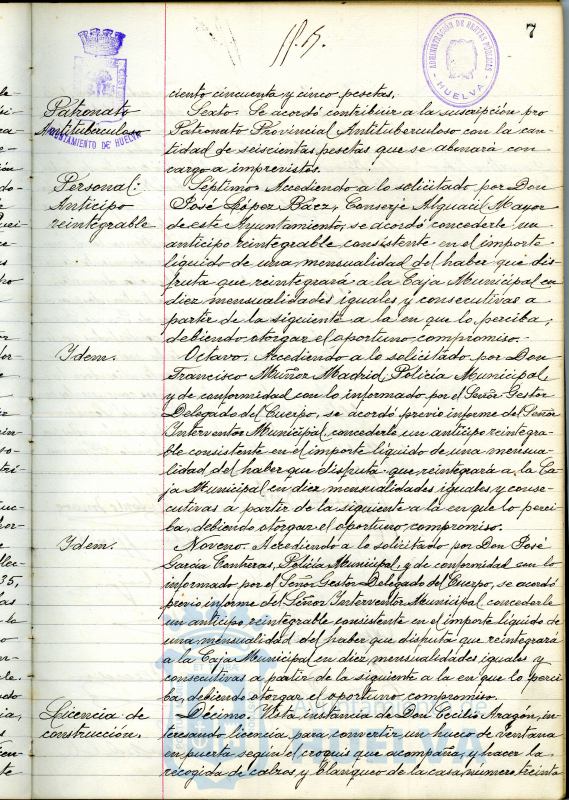 7
ADMINISTRACIÓN DE RENTAS PÚBLICAS
HUELVA
AYUNTAMIENTO DE HUELVA
ciento cincuenta y cinco pesetas.
Patronato Antituberculoso
Sexto. Se acordó contribuir a la suscripción pro
Patronato Provincial Antituberculoso con la can-
tidad de seiscientas pesetas que se abonará con
cargo a imprevistos.
Personal: Anticipo reintegrable
Séptimo. Accediendo a lo solicitado por Don
José López Báez, Conserje Alguacil Mayor
de este Ayuntamiento, se acordó concederle un
anticipo reintegrable consistente en el importe
líquido de una mensualidad del haber que dis
fruta que reintegrará a la Caja Municipal en
diez mensualidades iguales y consecutivas a
partir de la siguiente a la en que lo perciba,
debiendo otorgar el oportuno compromiso.
Idem.
Octavo. Accediendo a lo solicitado por Don
Francisco Muñoz Madrid, Policía Municipal,
y de conformidad con lo informado por el Señor Gestor
Delegado del Cuerpo, se acordó previo informe del Señor
Interventor Municipal, concederle un anticipo reintegra-
ble consistente en el importe líquido de una mensua-
lidad del haber que disfruta que reintegrará a la Ca-
ja Municipal en diez mensualidades iguales y conse-
cutivas a partir de la siguiente a la en que lo perci-
ba, debiendo otorgar el oportuno compromiso.
Idem.
Noveno. Accediendo a lo solicitado por Don José
García Contreras, Policía Municipal, y de conformidad con lo
informado por el Señor Gestor Delegado del Cuerpo, se acordó
previo informe del Señor Interventor Municipal concederle
un anticipo reintegrable consistente en el importe líquido de
una mensualidad del haber que disputa que reintegrará
a la Caja Municipal en diez mensualidades iguales y
consecutivas a partir de la siguiente a la en que lo perci-
ba, debiendo otorgar el oportuno compromiso.
Licencia de construcción.
Décimo. Vista instancia de Don Cecilio Aragón, in-
teresando licencia para convertir un hueco de ventana
en puerta según el croquis que acompaña, y hacer la
recogida de calzos, y blanqueo de la casa número treinta
Ayuntamiento de